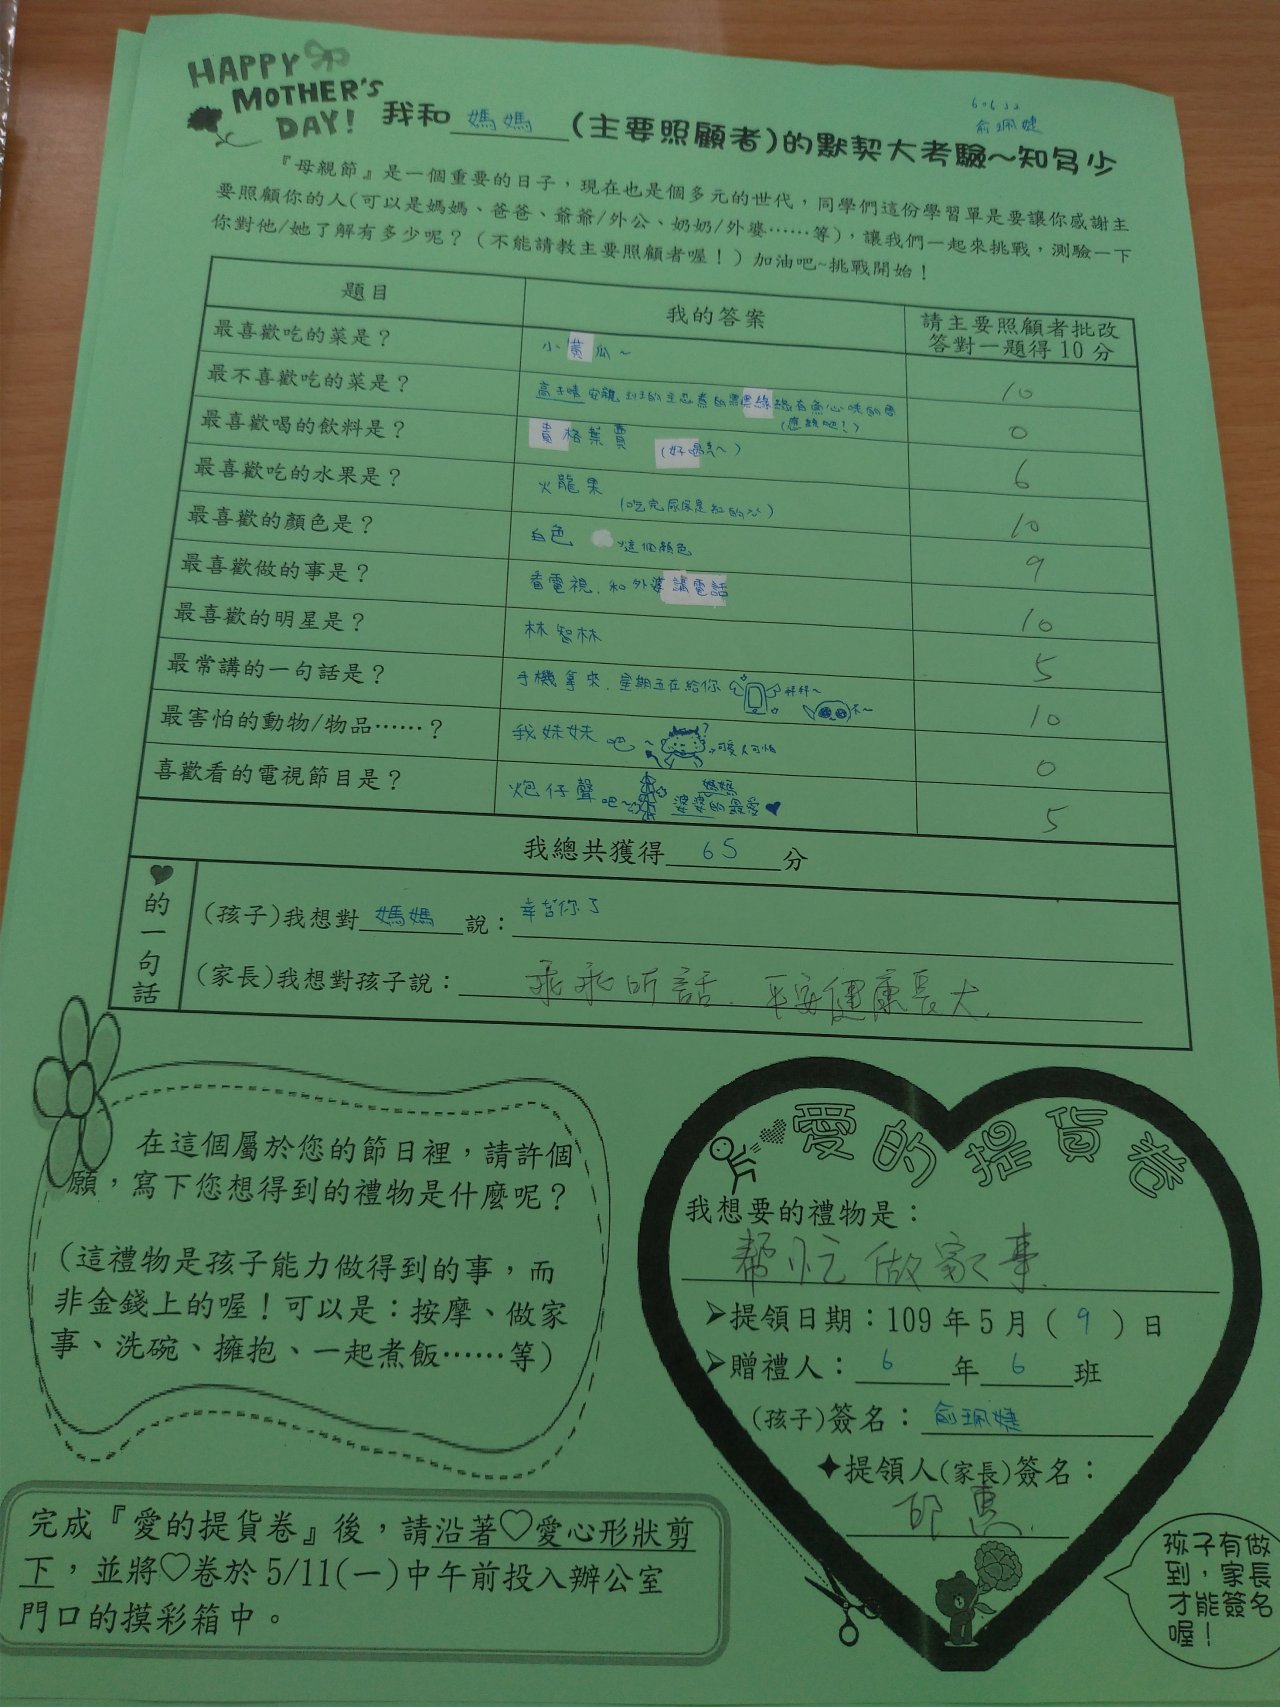 HAPPY
MOTHER'S
DAY!
60622
俞珮婕
我和媽媽(主要照顧者)的默契大考驗~知多少
『母親節』是一個重要的日子，現在也是個多元的世代，同學們這份學習單是要讓你感謝主
要照顧你的人(可以是媽媽、爸爸、爺爺/外公、奶奶/外婆……等)，讓我們一起來挑戰，測驗一下
你對他/她了解有多少呢？（不能請教主要照顧者喔！）加油吧~挑戰開始！
題目 我的答案 請主要照顧者批改
答對一題得10分
最喜歡吃的菜是？ 小黃瓜~ 10
最不喜歡吃的菜是？ 0
(應該吧!)
最喜歡喝的飲料是？ 貴格 (好喝~) 6
最喜歡吃的水果是？ 火龍果 10
(吃完尿尿是紅的)
最喜歡的顏色是？ 白色 這個顏色 9
最喜歡做的事是？ 看電視.和外婆講電話 10
最喜歡的明星是？ 林智林 5
最常講的一句話是？ 手機拿來.星期五在給你 拜拜~ 不~ 10
最害怕的動物/物品……？ 我妹妹吧~ 可愛又可怕 0
喜歡看的電視節目是？ 炮仔聲吧~ 媽媽 婆婆的最愛♥ 5
我總共獲得65分
♥的一句話
(孩子)我想對媽媽說：辛苦你了
(家長)我想對孩子說：乖乖听話.平安健康長大.
在這個屬於您的節日裡，請許個
願，寫下您想得到的禮物是什麼呢？
（這禮物是孩子能力做得到的事，而
非金錢上的喔！可以是：按摩、做家
事、洗碗、擁抱、一起煮飯……等）
完成『愛的提貨卷』後，請沿著♡愛心形狀剪
下，並將♡卷於5/11(一)中午前投入辦公室
門口的摸彩箱中。
愛的提貨卷
我想要的禮物是：
帮忙做家事.
➤提領日期：109年5月（9）日
➤贈禮人：6年6班
(孩子)簽名：俞珮婕
✦提領人(家長)簽名：
孩子有做
到，家長
才能簽名
喔！